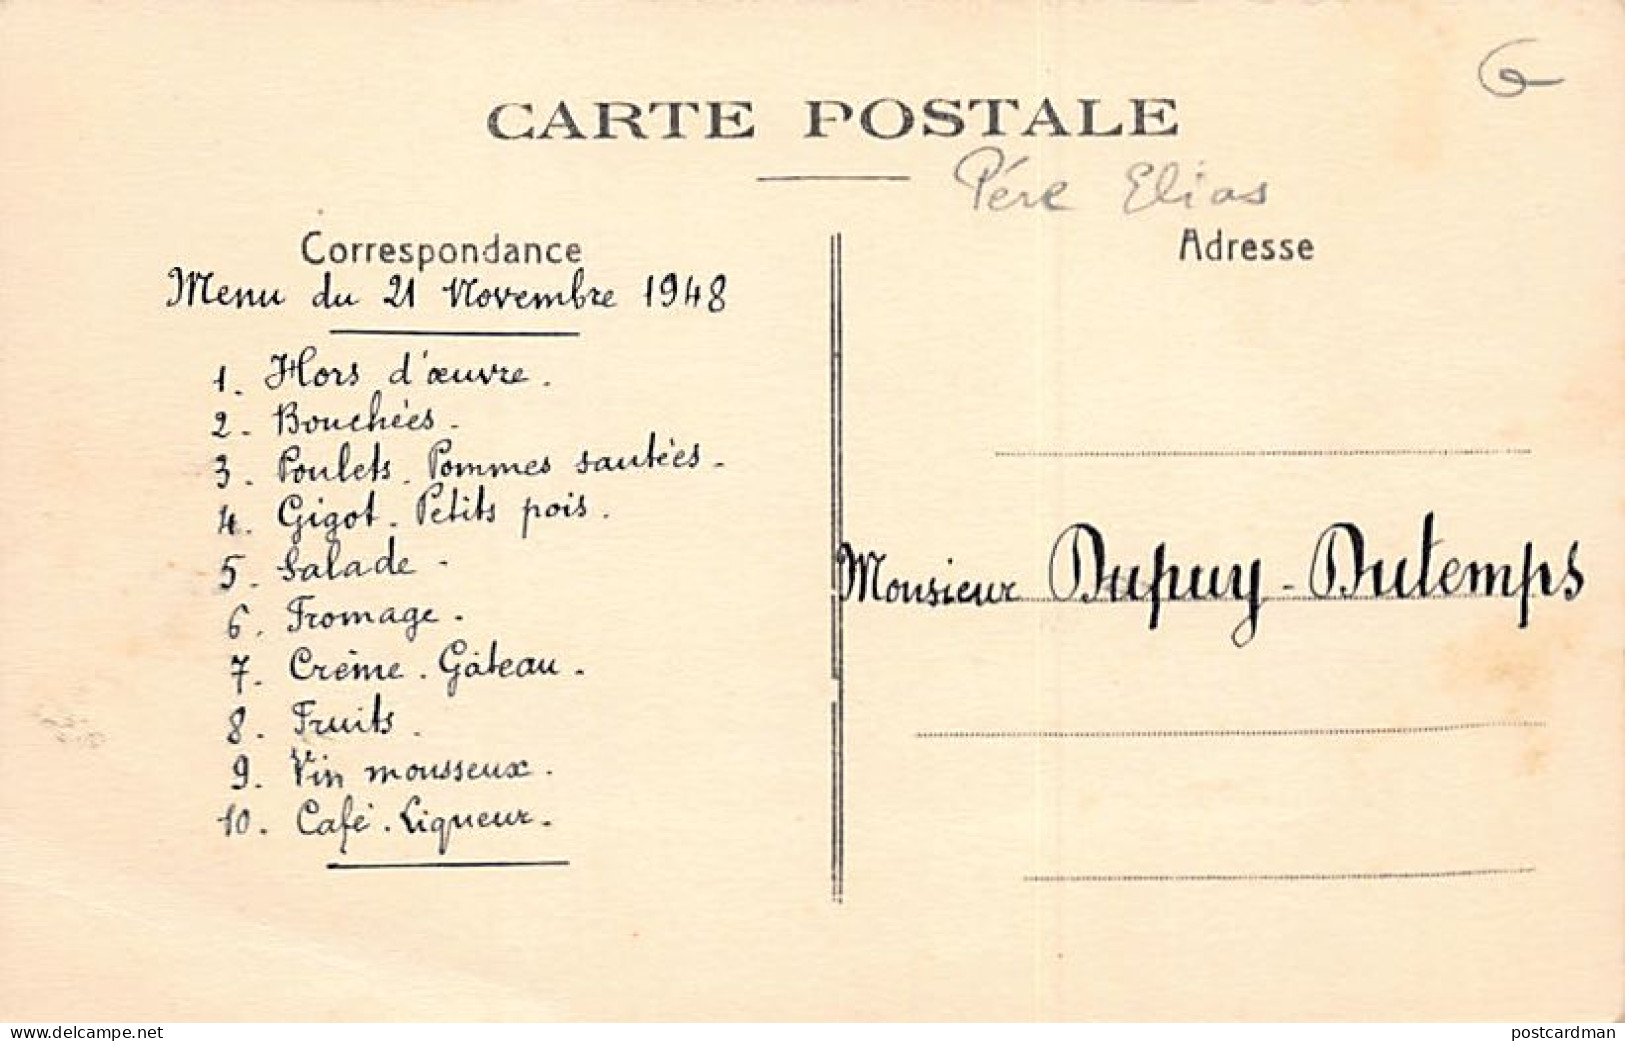 CARTE POSTALE
Père Elias
Correspondance
Menu du 21 Novembre 1948
1. Hors d'œuvre.
2. Bouchées.
3. Poulets. Pommes sautées.
4. Gigot. Petits pois.
5. Salade.
6. Fromage.
7. Crème. Gâteau.
8. Fruits.
9. Vin mousseux.
10. Café. Liqueur.
Adresse
Monsieur Dupuy-Dutemps
www.delcampe.net
postcardman